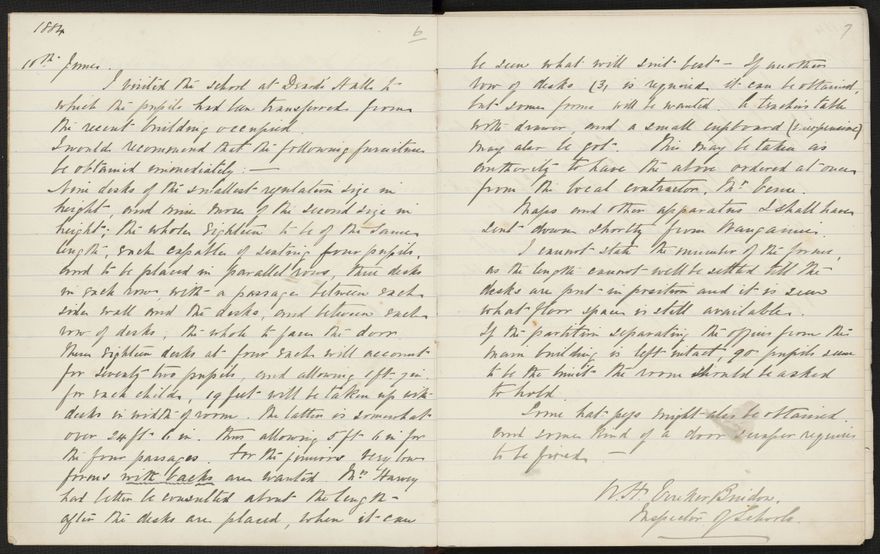 1884
6
10th June.
I visited the school at Druids Hall to
which the pupils had been transferred from
the recent building occupied.
I would recommend that the following furniture
be obtained immediately: —
Nine desks of the smallest regulation size in
height, and nine more of the second size in
height; the whole eighteen to be of the same
length, each capable of seating four pupils,
and to be placed in parallel rows, three desks
in each row, with a passage between each
side wall and the desks, and between each
row of desks; the whole to face the door.
These eighteen desks at four each will account
for seventy two pupils, and allowing 1ft-7in
for each child, 19 feet will be taken up with
desks in width of room. The latter is somewhat
over 24ft 6 in. thus allowing 5 ft 6 in for
the four passages. For the juniors very low
forms with backs are wanted. Harvey
had better be consulted about the length
after the desks are placed, when it can
7
be seen what will suit best — If another
row of desks (3) is required it can be obtained,
but some forms will be wanted. A teacher's table
with drawer, and a small cupboard (inexpensive)
may also be got. This may be taken as
authority to have the above ordered at once
from the local contractor, Mr
Maps and other apparatus I shall have
sent down shortly from Wanganui.
I cannot state the number of the forms,
as the length cannot well be settled till the
desks are put in position and it is seen
what floor space is still available.
If the partition separating the offices from the
main building is left intact, 90 pupils seem
to be the limit the room should be asked
to hold.
Some hat pegs might also be obtained
and some kind of a door scraper requires
to be fixed —
W. H. Vereker Bindon,
Inspector of Schools.